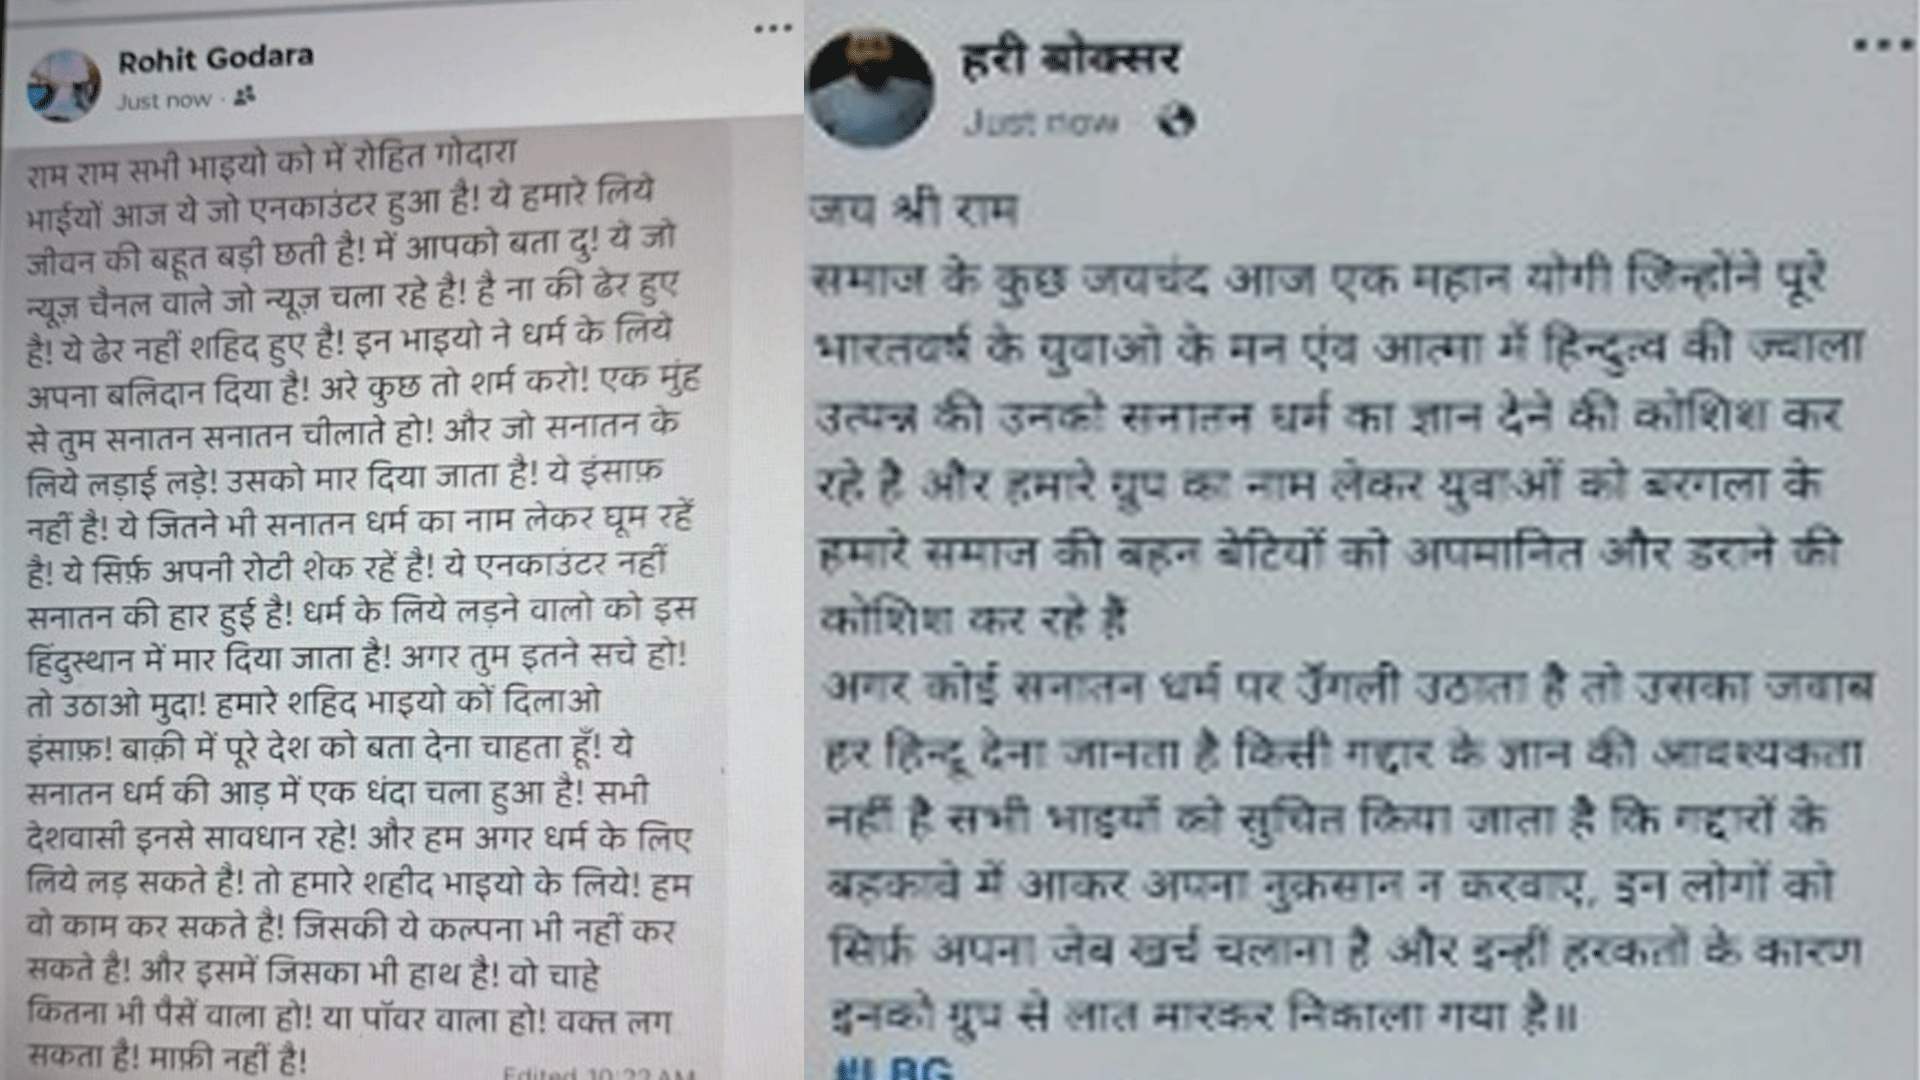 Rohit Godara
Just now ·
राम राम सभी भाइयो को में रोहित गोदारा
भाईयों आज ये जो एनकाउंटर हुआ है! ये हमारे लिये
जीवन की बहूत बड़ी छती है! में आपको बता दु! ये जो
न्यूज़ चैनल वाले जो न्यूज़ चला रहे है! है ना की ढेर हुए
है! ये ढेर नहीं शहिद हुए है! इन भाइयो ने धर्म के लिये
अपना बलिदान दिया है! अरे कुछ तो शर्म करो! एक मुंह
से तुम सनातन सनातन चीलाते हो! और जो सनातन के
लिये लड़ाई लड़े! उसको मार दिया जाता है! ये इंसाफ़
नहीं है! ये जितने भी सनातन धर्म का नाम लेकर घूम रहें
है! ये सिर्फ़ अपनी रोटी शेक रहें है! ये एनकाउंटर नहीं
सनातन की हार हुई है! धर्म के लिये लड़ने वालो को इस
हिंदुस्थान में मार दिया जाता है! अगर तुम इतने सचे हो!
तो उठाओ मुदा! हमारे शहिद भाइयो कों दिलाओ
इंसाफ़! बाक़ी में पूरे देश को बता देना चाहता हूँ! ये
सनातन धर्म की आड़ में एक धंदा चला हुआ है! सभी
देशवासी इनसे सावधान रहे! और हम अगर धर्म के लिए
लिये लड़ सकते है! तो हमारे शहीद भाइयो के लिये! हम
वो काम कर सकते है! जिसकी ये कल्पना भी नहीं कर
सकते है! और इसमें जिसका भी हाथ है! वो चाहे
कितना भी पैसें वाला हो! या पॉवर वाला हो! वक्त लग
सकता है! माफ़ी नहीं है!
Edited 10:22 AM
हरी बोक्सर
Just now
जय श्री राम
समाज के कुछ जयचंद आज एक महान योगी जिन्होंने पूरे
भारतवर्ष के युवाओ के मन एंव आत्मा में हिन्दुत्व की ज्वाला
उत्पन्न की उनको सनातन धर्म का ज्ञान देने की कोशिश कर
रहे है और हमारे ग्रुप का नाम लेकर युवाओं को बरगला के
हमारे समाज की बहन बेटियों को अपमानित और डराने की
कोशिश कर रहे हैं
अगर कोई सनातन धर्म पर उँगली उठाता है तो उसका जवाब
हर हिन्दू देना जानता है किसी गद्दार के ज्ञान की आवश्यकता
नहीं है सभी भाइयों को सुचित किया जाता है कि गद्दारों के
बहकावे में आकर अपना नुक़सान न करवाए, इन लोगों को
सिर्फ़ अपना जेब खर्च चलाना है और इन्हीं हरकतों के कारण
इनको ग्रुप से लात मारकर निकाला गया है॥
#LBG